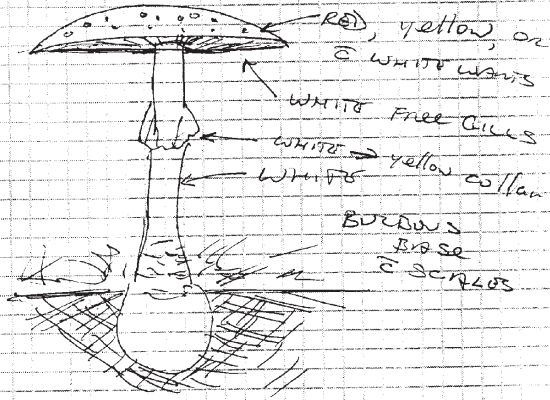 RED, yellow, or
c̄ WHITE WARTS
WHITE FREE GILLS
WHITE → yellow collar
WHITE
BULBOUS
BASE
c̄ SCALES